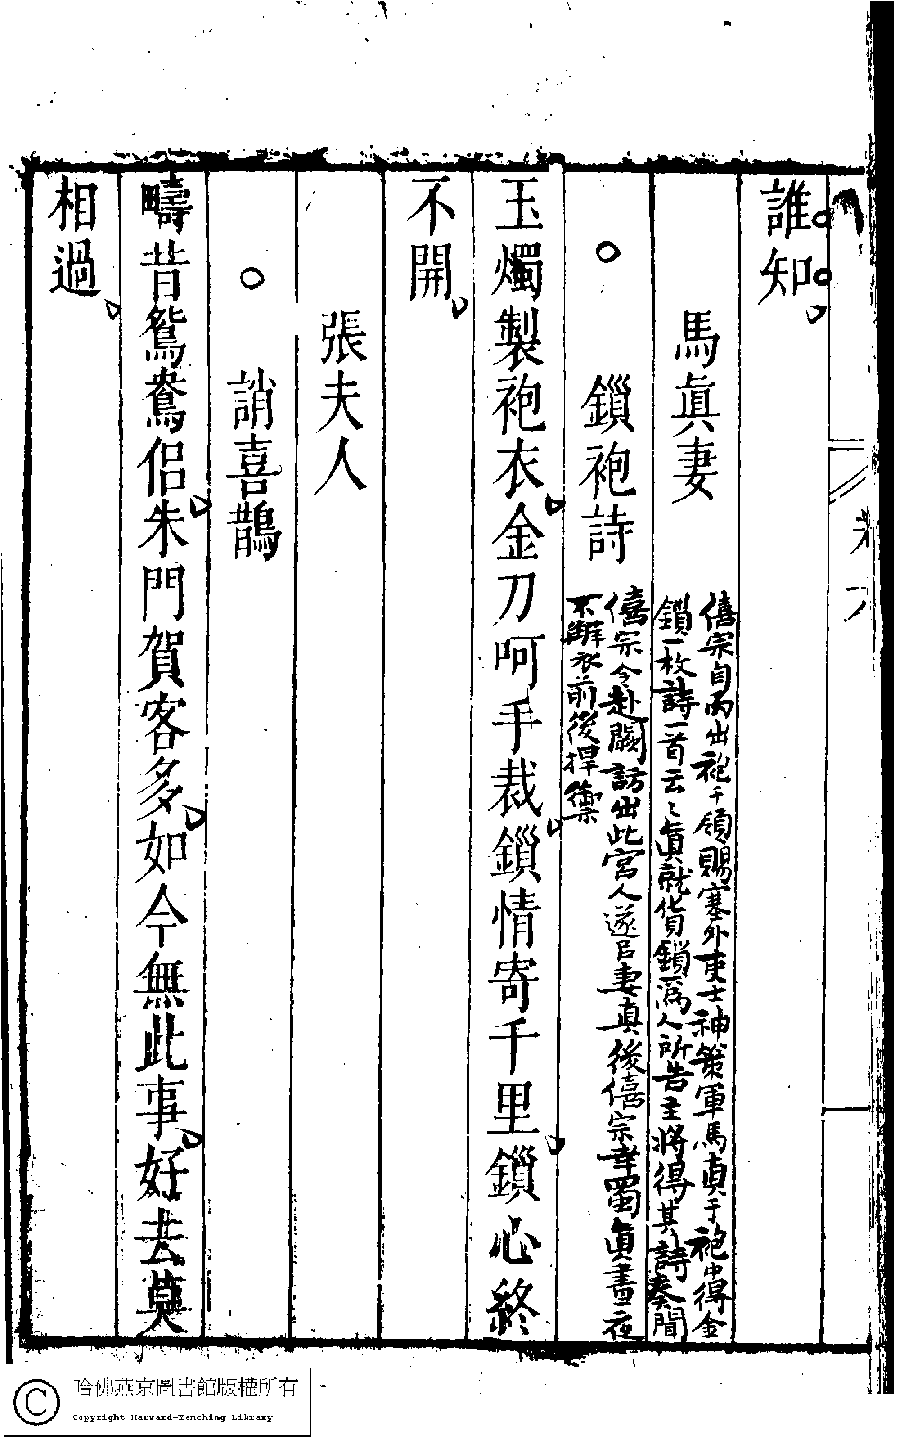 誰知
馬眞妻
僖宗自內出袍千領賜塞外吏士神策軍馬眞于袍中得金
鎖一枚詩一首云云眞就貨鎖爲人所告主將得其詩奏聞
鎖袍詩
僖宗令赴闕訪出此宮人遂㠯妻真後僖宗幸蜀眞晝夜
不解衣前後捍禦
玉燭製袍衣金刀呵手裁鎖情寄千里鎖心終
不開
張夫人
誚喜鵲
疇昔鴛鴦侣朱門賀客多如今無此事好去莫
相過
哈佛燕京圖書館版權所有
Copyright Harvard-Yenching Library